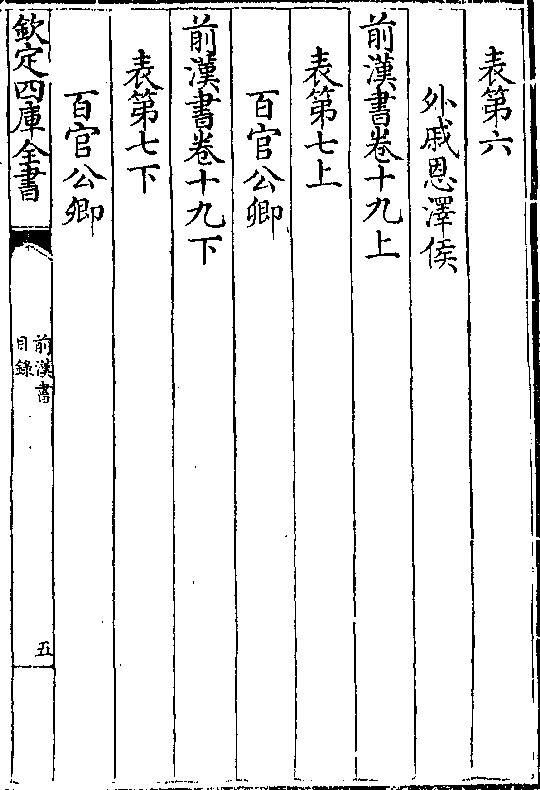 表第六
外戚恩澤侯
前漢書卷十九上
表第七上
百官公卿
前漢書卷十九下
表第七下
百官公卿
欽定四庫全書
前漢書
目錄
五